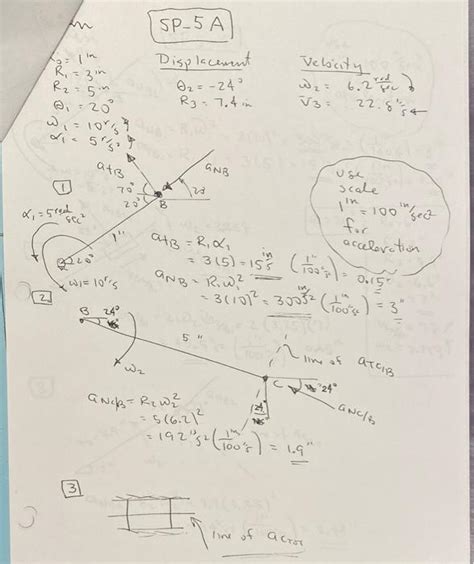 SP_5A
Displacement
Velocity
R₁ = 3 in
R₂ = 5 in
θ₁ = 20°
ω₁ = 10 r/s
α₁ = 5 r/s²
θ₂ = -24°
R₃ = 7.4 in
ω₂ = 6.2 rad/sec
V₃ = 22.8 "/s
use
scale
1 in = 100 in/sec²
for
acceleration
1
a_t/B
a_NB
20°
20°
B
α₁ = 5 rad/sec²
1"
20°
ω₁ = 10 r/s
a_tB = R₁α₁
= 3(5) = 15 in/s² (1"/100"/s²) = 0.15"
a_NB = R₁ω₁²
= 3(10)² = 300 in/s² (1 in/100"/s²) = 3"
2
B
24°
5"
ω₂
line of a_TC/B
C
24°
a_NC/B
24
a_NC/B = R₂ω₂²
= 5(6.2)²
= 192 "/s² (1 in/100"/s²) = 1.9"
3
line of a_CTOT